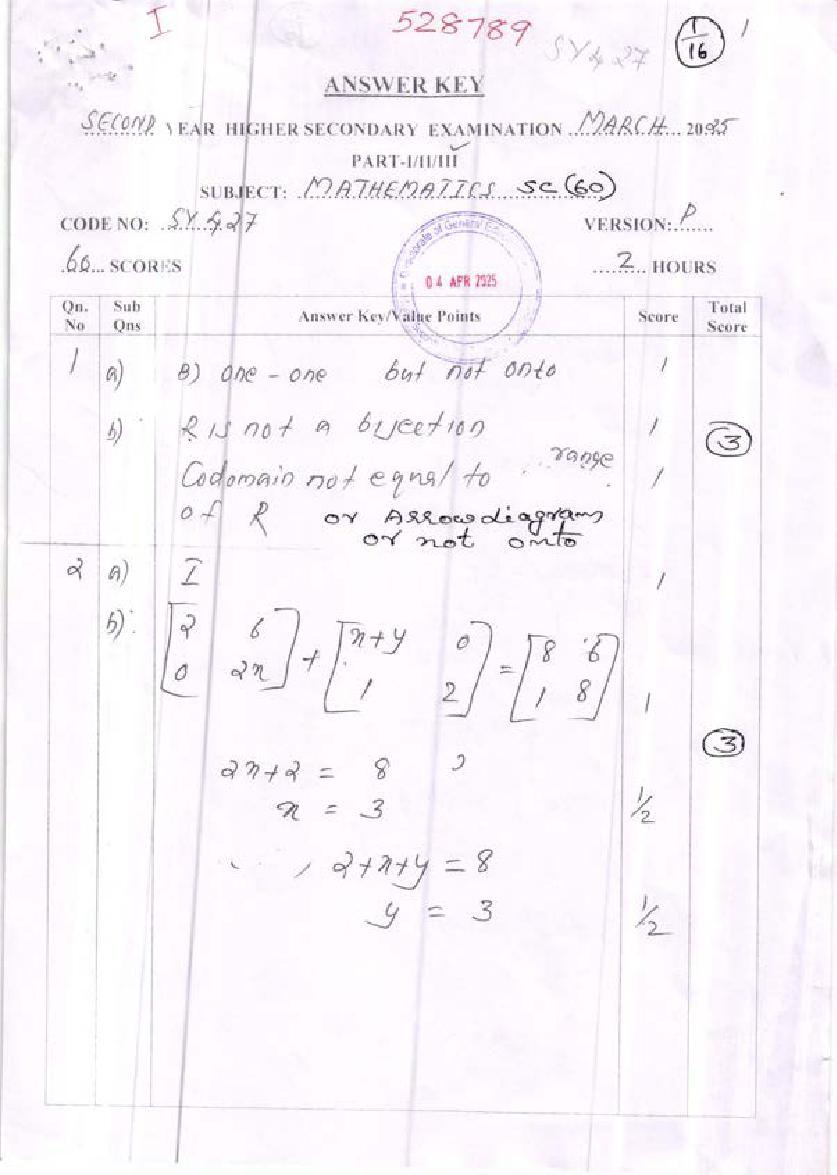 I 528789 SY 427 1/16 1
ANSWER KEY
SECOND YEAR HIGHER SECONDARY EXAMINATION MARCH 2025
PART-I/II/III
SUBJECT: MATHEMATICS SC (60)
CODE NO: SY 427 VERSION: P
60 SCORES 04 APR 2025 2 HOURS
Qn. No Sub Qns Answer Key/Value Points Score Total Score
1 a) B) one - one but not onto 1
b) R is not a bijection 1 3
Codomain not equal to range 1
of R or Arrow diagram
or not onto
2 a) I 1
b) [2 6 [x+y 0 [8 6
0 2x] + 1 2] = 1 8] 1
3
2x+2 = 8
x = 3 1/2
2+x+y = 8
y = 3 1/2